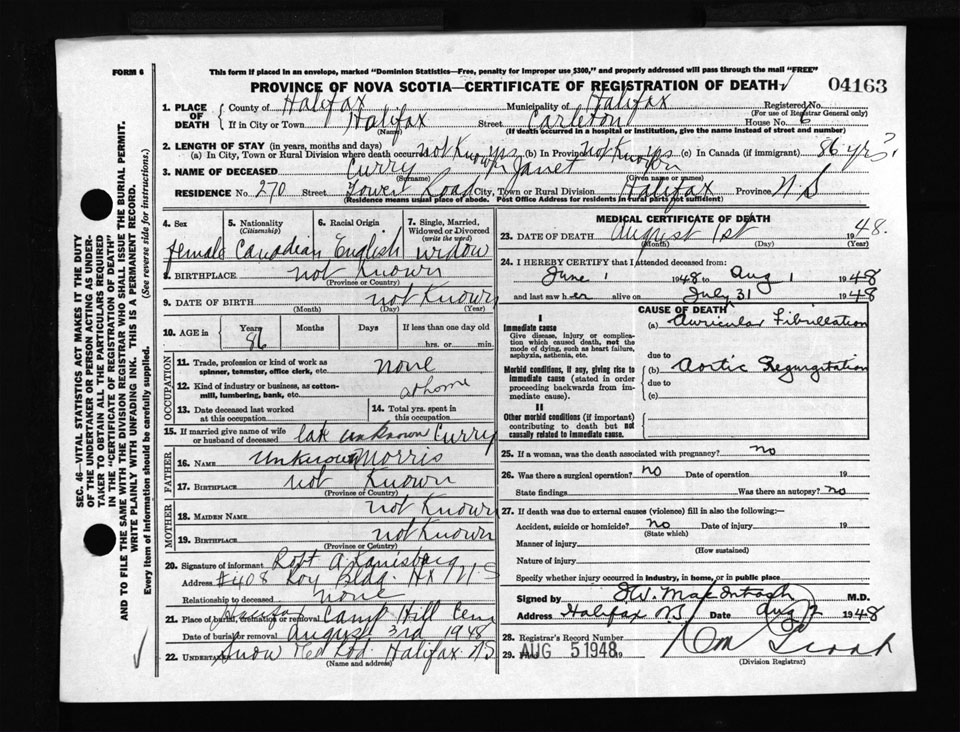 FORM 6
This form if placed in an envelope, marked "Dominion Statistics—Free, penalty for improper use $300," and properly addressed will pass through the mail "FREE"
PROVINCE OF NOVA SCOTIA—CERTIFICATE OF REGISTRATION OF DEATH
04163
1. PLACE OF DEATH
County of Halifax Municipality of Halifax Registered No.
(For use of Registrar General only)
If in City or Town Halifax Street Carleton House No. 6
(Name) (If death occurred in a hospital or institution, give the name instead of street and number)
2. LENGTH OF STAY (in years, months and days)
(a) In City, Town or Rural Division where death occurred not Known yrs (b) In Province not Known yrs (c) In Canada (if immigrant) 86 yrs?
3. NAME OF DECEASED Curry Janet
(Surname) (Given name or names)
RESIDENCE No. 270 Street Tower Road City, Town or Rural Division Halifax Province N.S
(Residence means usual place of abode. Post Office Address for residents in rural parts not sufficient)
4. Sex female
5. Nationality (Citizenship) Canadian
6. Racial Origin English
7. Single, Married, Widowed or Divorced (write the word) widow
8. BIRTHPLACE not Known
(Province or Country)
9. DATE OF BIRTH not Known
(Month) (Day) (Year)
10. AGE in Years 86 Months Days If less than one day old
hrs. or min.
OCCUPATION
11. Trade, profession or kind of work as spinner, teamster, office clerk, etc. none
12. Kind of industry or business, as cotton-mill, lumbering, bank, etc. at home
13. Date deceased last worked at this occupation
14. Total yrs. spent in this occupation
15. If married give name of wife or husband of deceased late unknown Curry
FATHER
16. NAME Unknown Morris
17. BIRTHPLACE not Known
(Province or Country)
MOTHER
18. MAIDEN NAME not Known
19. BIRTHPLACE not Known
(Province or Country)
20. Signature of informant Robt A
Address #408 Roy Bldg. Hx N S
Relationship to deceased none
21. Place of burial, cremation or removal Halifax Camp Hill Cem
Date of burial or removal August 3rd 1948
22. Undertaker Snow Halifax NS
(Name and address)
MEDICAL CERTIFICATE OF DEATH
23. DATE OF DEATH August 1st 1948.
(Month) (Day) (Year)
24. I HEREBY CERTIFY that I attended deceased from:
June 1 1948 to Aug 1 1948
and last saw her alive on July 31 1948
CAUSE OF DEATH
I
Immediate cause
Give disease, injury or complication which caused death, not the mode of dying, such as heart failure, asphyxia, asthenia, etc.
(a) Auricular Fibrillation
due to
Morbid conditions, if any, giving rise to immediate cause (stated in order proceeding backwards from immediate cause).
(b) Aortic Regurgitation
due to
(c)
II
Other morbid conditions (if important) contributing to death but not causally related to immediate cause.
25. If a woman, was the death associated with pregnancy? no
26. Was there a surgical operation? no Date of operation 19
State findings Was there an autopsy? no
27. If death was due to external causes (violence) fill in also the following:—
Accident, suicide or homicide? no Date of injury 19
(State which)
Manner of injury
(How sustained)
Nature of injury
Specify whether injury occurred in industry, in home, or in public place
Signed by J.W. MacIntosh M.D.
Address Halifax NS Date Aug 2 1948
28. Registrar's Record Number
29. AUG 5 1948 19
(Division Registrar)
SEC. 46—VITAL STATISTICS ACT MAKES IT THE DUTY
OF THE UNDERTAKER OR PERSON ACTING AS UNDER-
TAKER TO OBTAIN ALL THE PARTICULARS REQUIRED
IN THE "CERTIFICATE OF REGISTRATION OF DEATH"
AND TO FILE THE SAME WITH THE DIVISION REGISTRAR WHO SHALL ISSUE THE BURIAL PERMIT.
WRITE PLAINLY WITH UNFADING INK. THIS IS A PERMANENT RECORD.
Every item of information should be carefully supplied. (See reverse side for instructions.)